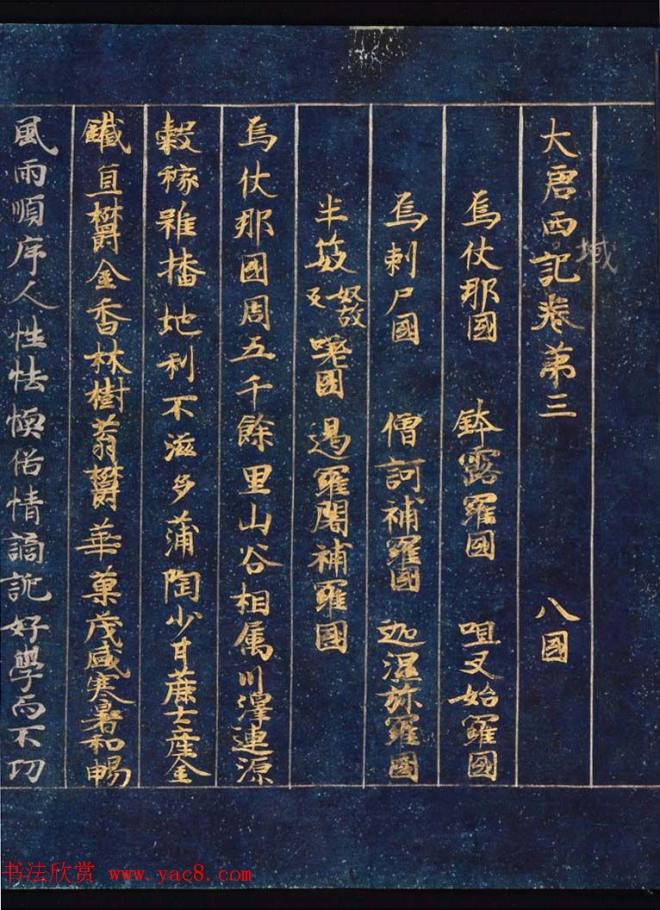 大唐西域記卷第三 八國
烏仗那國 鉢露羅國 呾叉始羅國
烏剌尸國 僧訶補羅國 迦濕弥羅國
半笯奴故反嗟國 遏羅闍補羅國
烏仗那國周五千餘里山谷相属川澤連源
穀稼雖播地利不滋多蒲陶少甘蔗土産金
鐵宜欝金香林樹蓊欝華菓茂盛寒暑和暢
風雨順序人性怯愞俗情譎詭好學而不功
书法欣赏 www.yac8.com